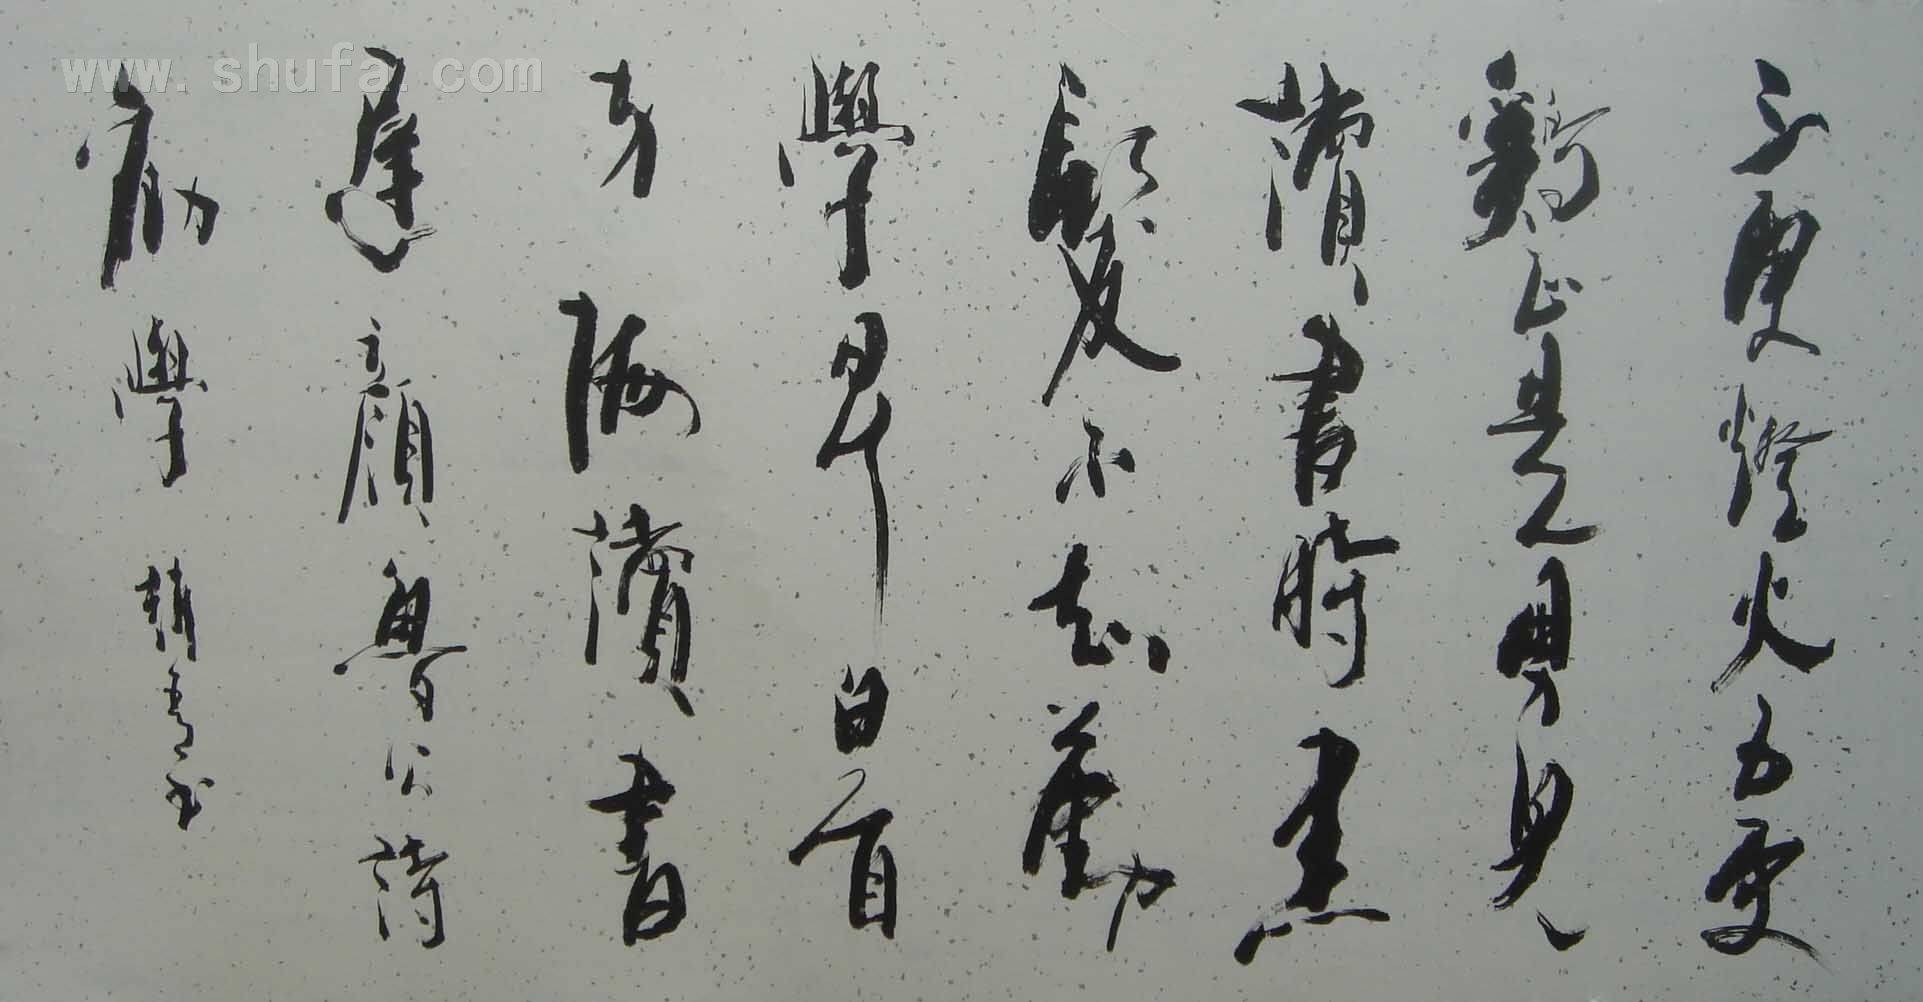 三更燈火五更
雞正是男兒
讀書時黑
髮不知勤
學早白首
方悔讀書
遲 顏魯公詩
勸學
www.shufa.com